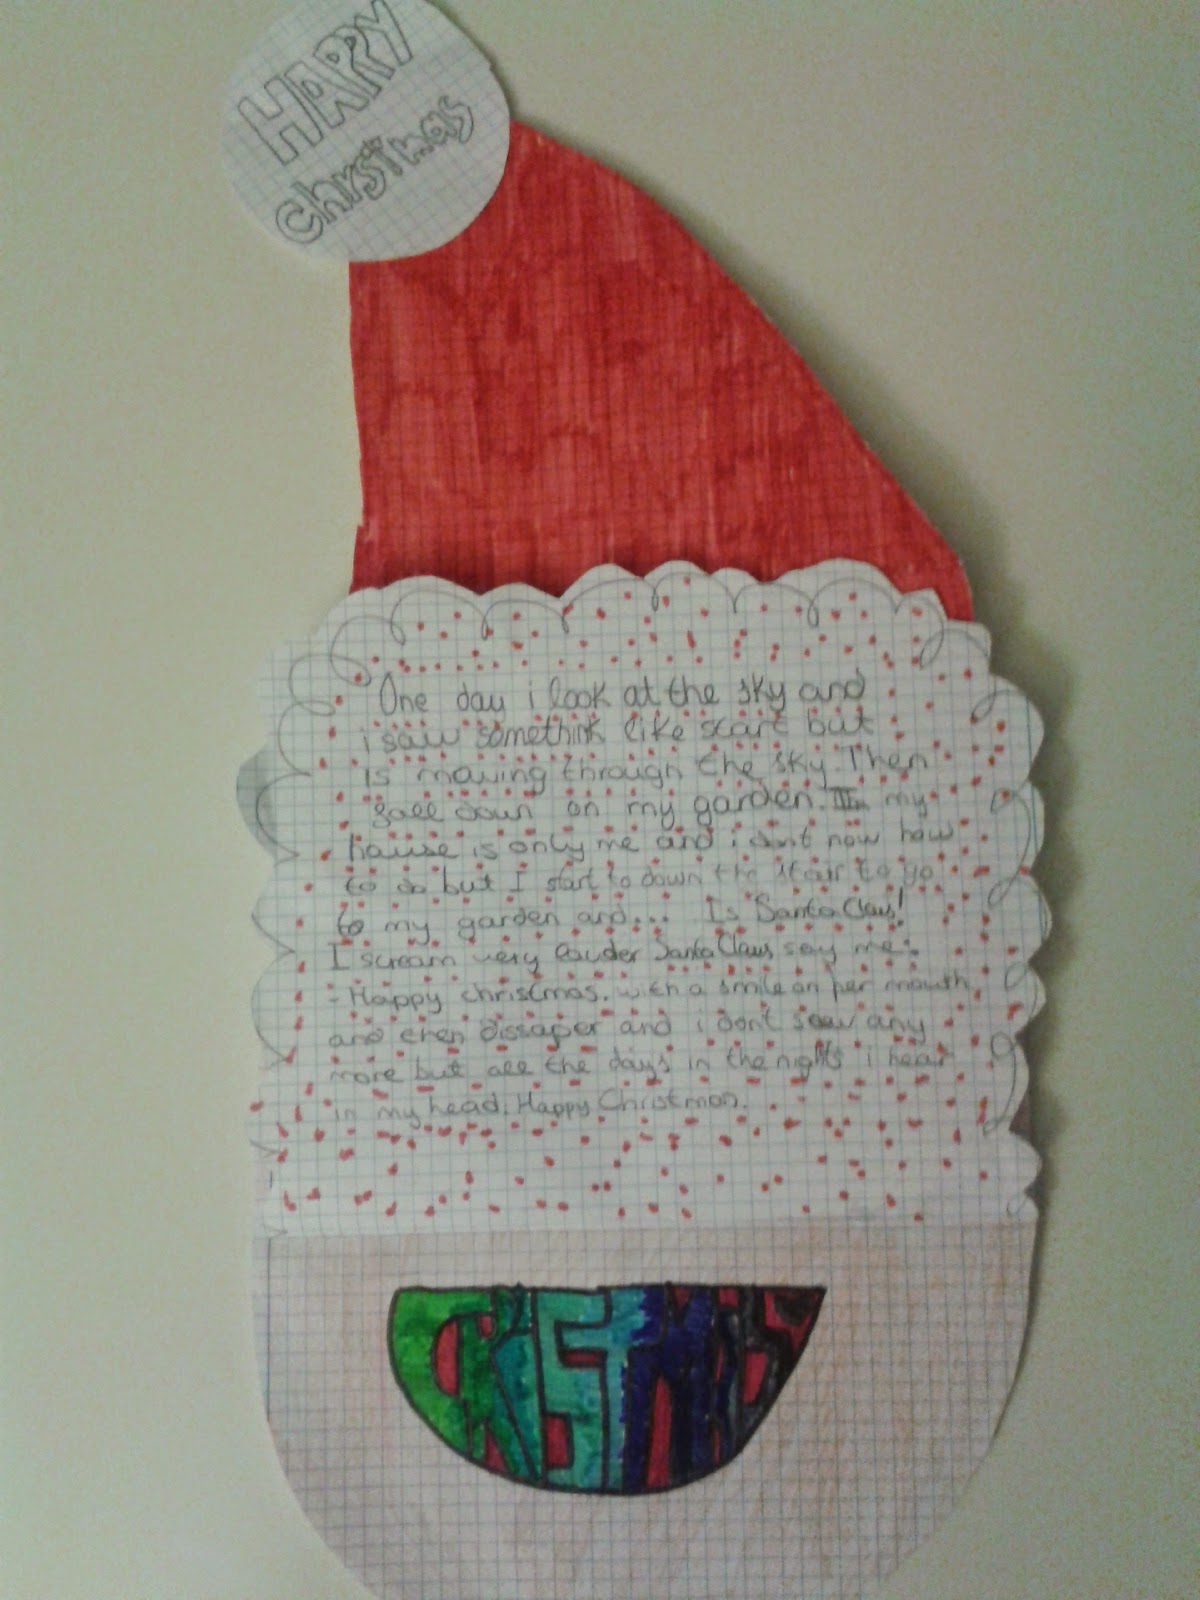 HAPPY
chrstmas
One day i look at the sky and
i saw somethink like start but
is moving through the sky. Then
fall down on my garden. In my
hause is only me and i dont now how
to do but I start to down the stair to go
to my garden and... Is Santa Claus!
I scream very louder Santa Claus say me:
- Happy christmas. with a smile on her mouth
and then dissaper and i dont saw any
more but all the days in the nights i hear
in my head. Happy Christmas.
CRISTMAS